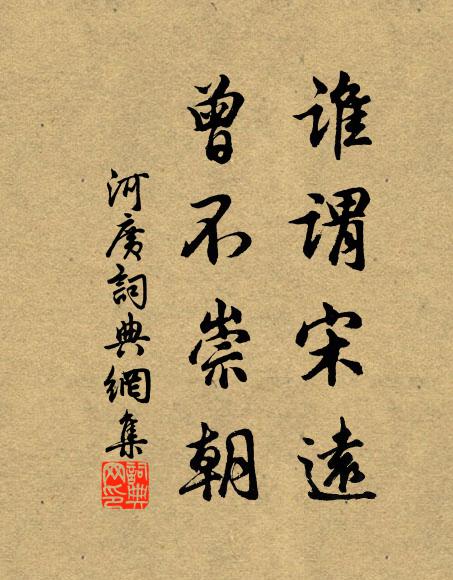 誰謂宋遠
曾不崇朝
河廣詞典網集
詞典
网印